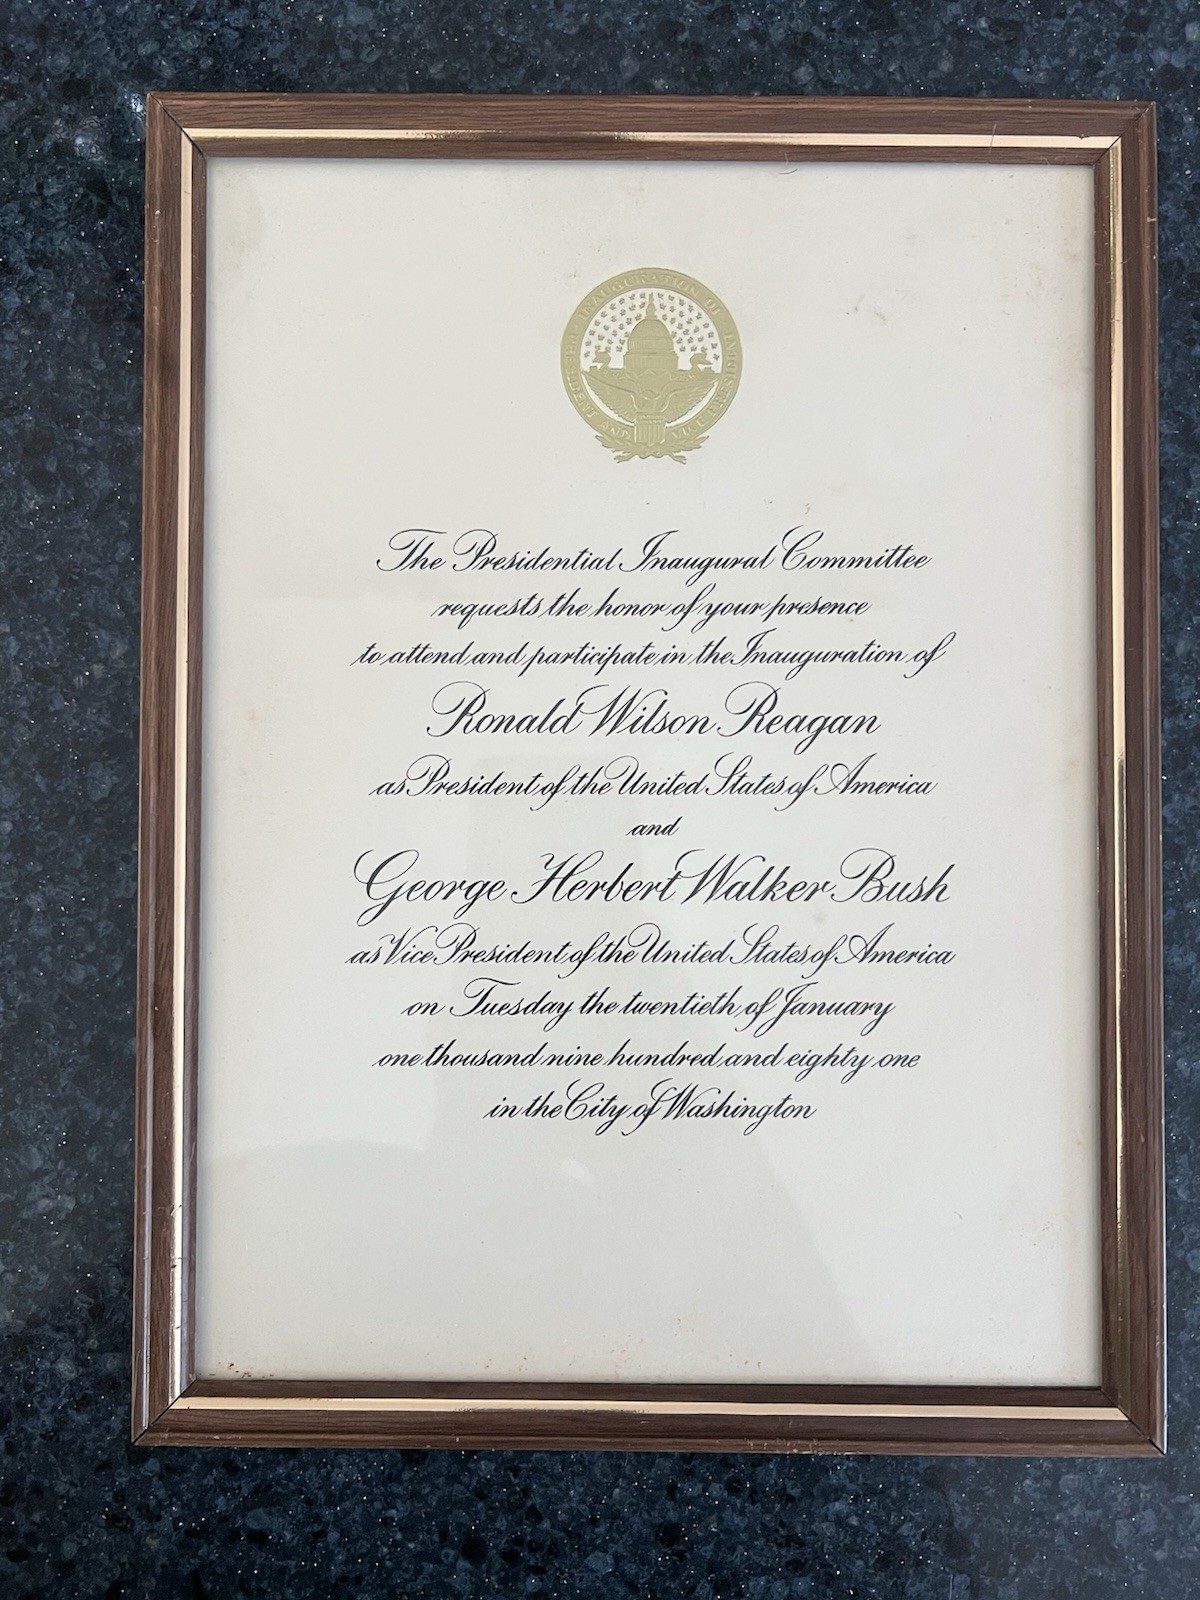 INAUGURATION OF
PRESIDENT AND VICE PRESIDENT
The Presidential Inaugural Committee
requests the honor of your presence
to attend and participate in the Inauguration of
Ronald Wilson Reagan
as President of the United States of America
and
George Herbert Walker Bush
as Vice President of the United States of America
on Tuesday the twentieth of January
one thousand nine hundred and eighty one
in the City of Washington